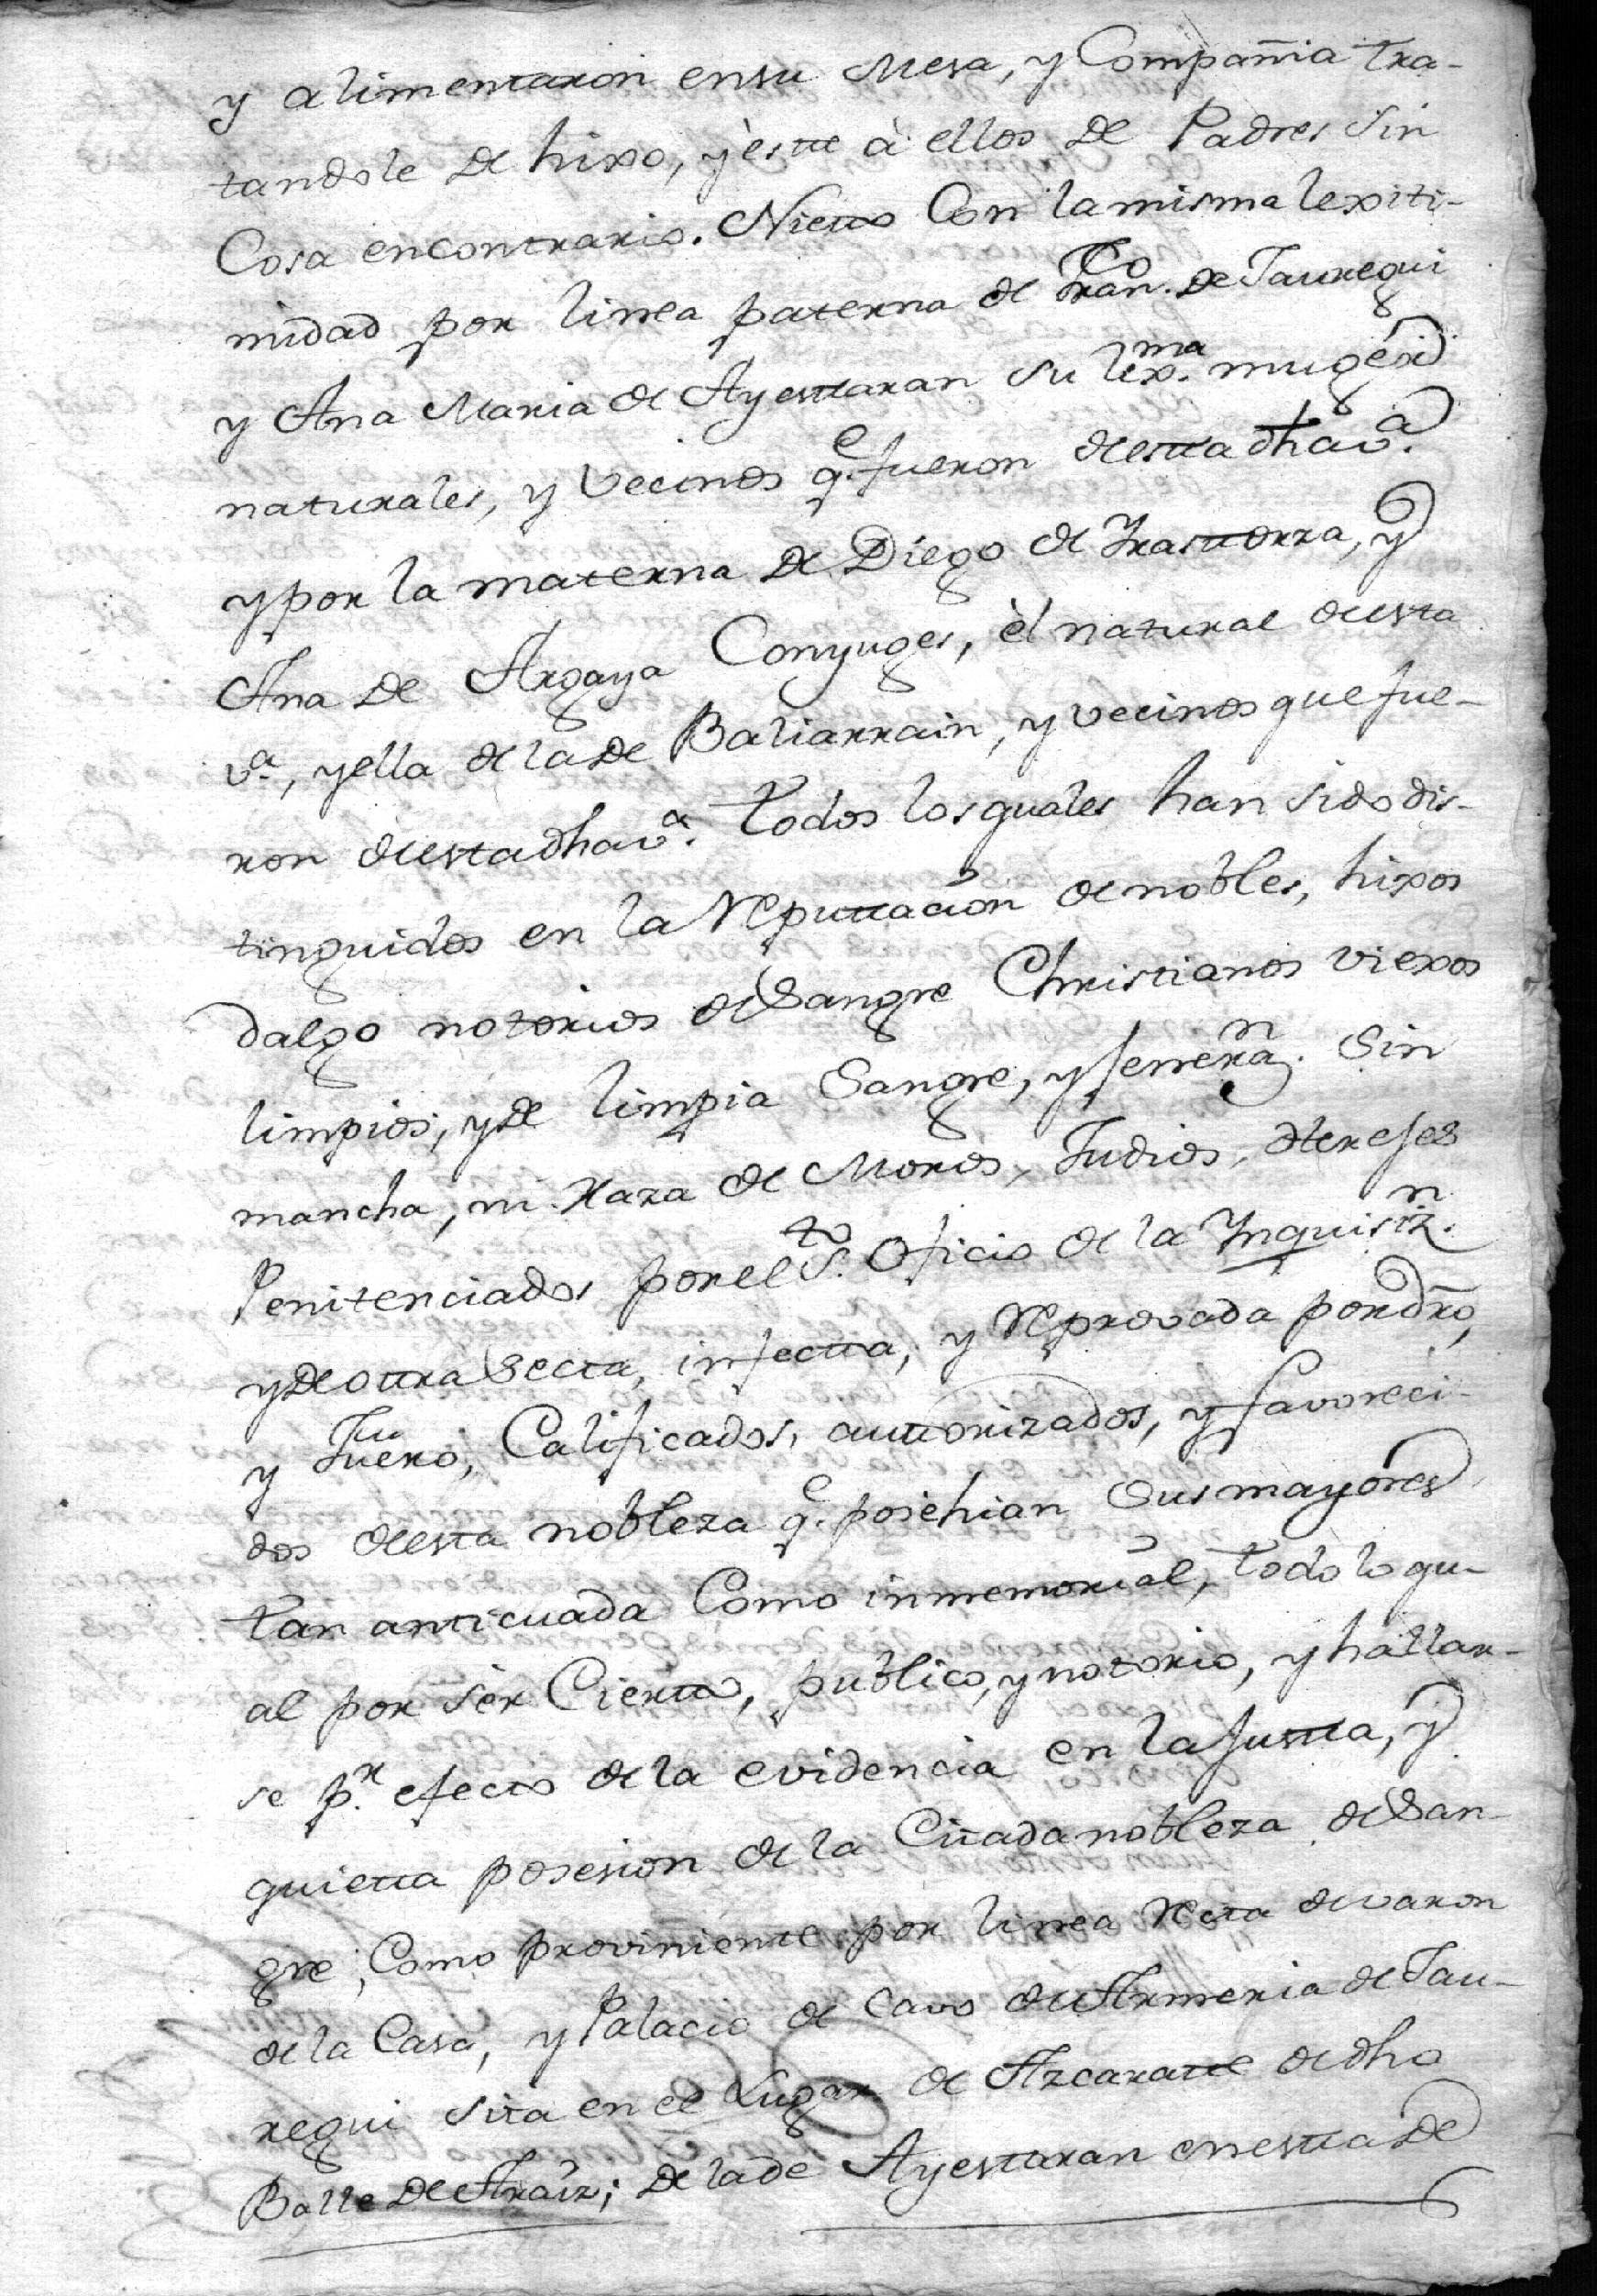 y alimentaron ensu Mesa, y Compañia tra-
tandole de hixo, y èste à ellos de Padres Sin
Cosa encontrario. Nietto Con la misma lexiti-
midad por linea paterna de Fran.co de Jauregui
y Ana Maria de Ayesttaran su lex.ma muger
naturales, y Vecinos q.e fueron de estta dha v.a
y por la materna de Diego de Yrasttorza, y
Ana de Argaya Conyuges, èl natural de esta
v.a, y ella de la de Baliarrain, y vecinos que fue-
ron de esta dha v.a. Todos los quales han sido dis-
tinguidos en la Reputtación de nobles, hixos
dalgo notorios de Sangre Christianos viexos
limpios, y de limpia Sangre, y fenera.n Sin
mancha, ni Raza de Moros, Judios, Herejes
Penitenciados por el S.to Oficio de la Ynquisiz.n
y de ottra Secta, infectta, y Reprovada por dro,
y Fuero, Calificados, auttorizados, y favoreci-
dos de esta nobleza q.e posehian Sus mayores
tan anticuada Como inmemorial, todo lo qu-
al por sèr Ciertto, publico, y notorio, y hallar-
se p.r efecto de la evidencia en la justta, y
quietta posesion de la Cittada nobleza de San-
gre, Como proviniente por linea Recta de varon
de la Casa, y Palacio de Cavo de Armeria de Jau-
regui sita en el Lugar de Azcaratte de dho
Balle de Araiz; de la de Ayesttaran en estta de